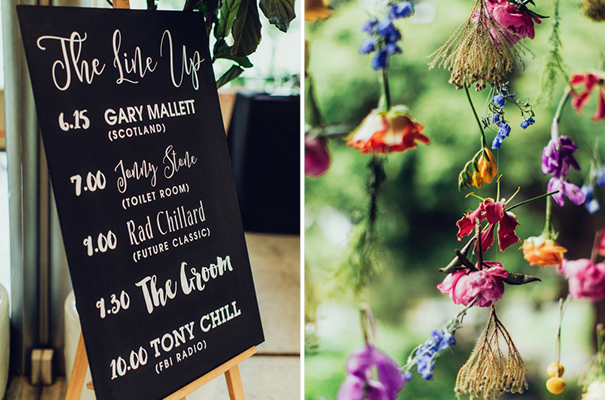 The Line Up
6.15 GARY MALLETT
(SCOTLAND)
7.00 Jonny Stone
(TOILET ROOM)
9.00 Rad Chillard
(FUTURE CLASSIC)
9.30 The Groom
10.00 TONY CHILL
(FBI RADIO)